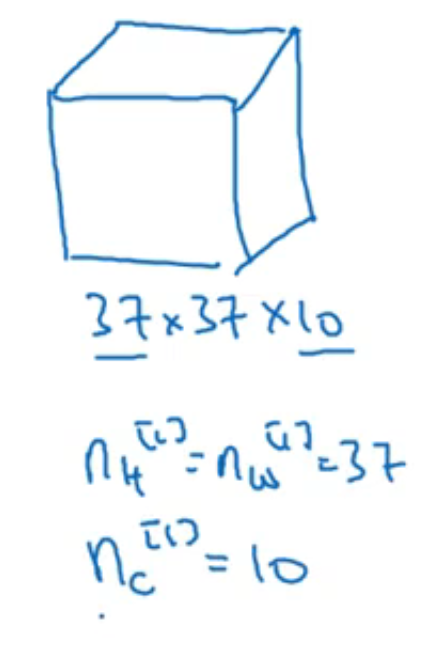 37×37×10
n_H^[1] = n_W^[1] = 37
n_C^[1] = 10